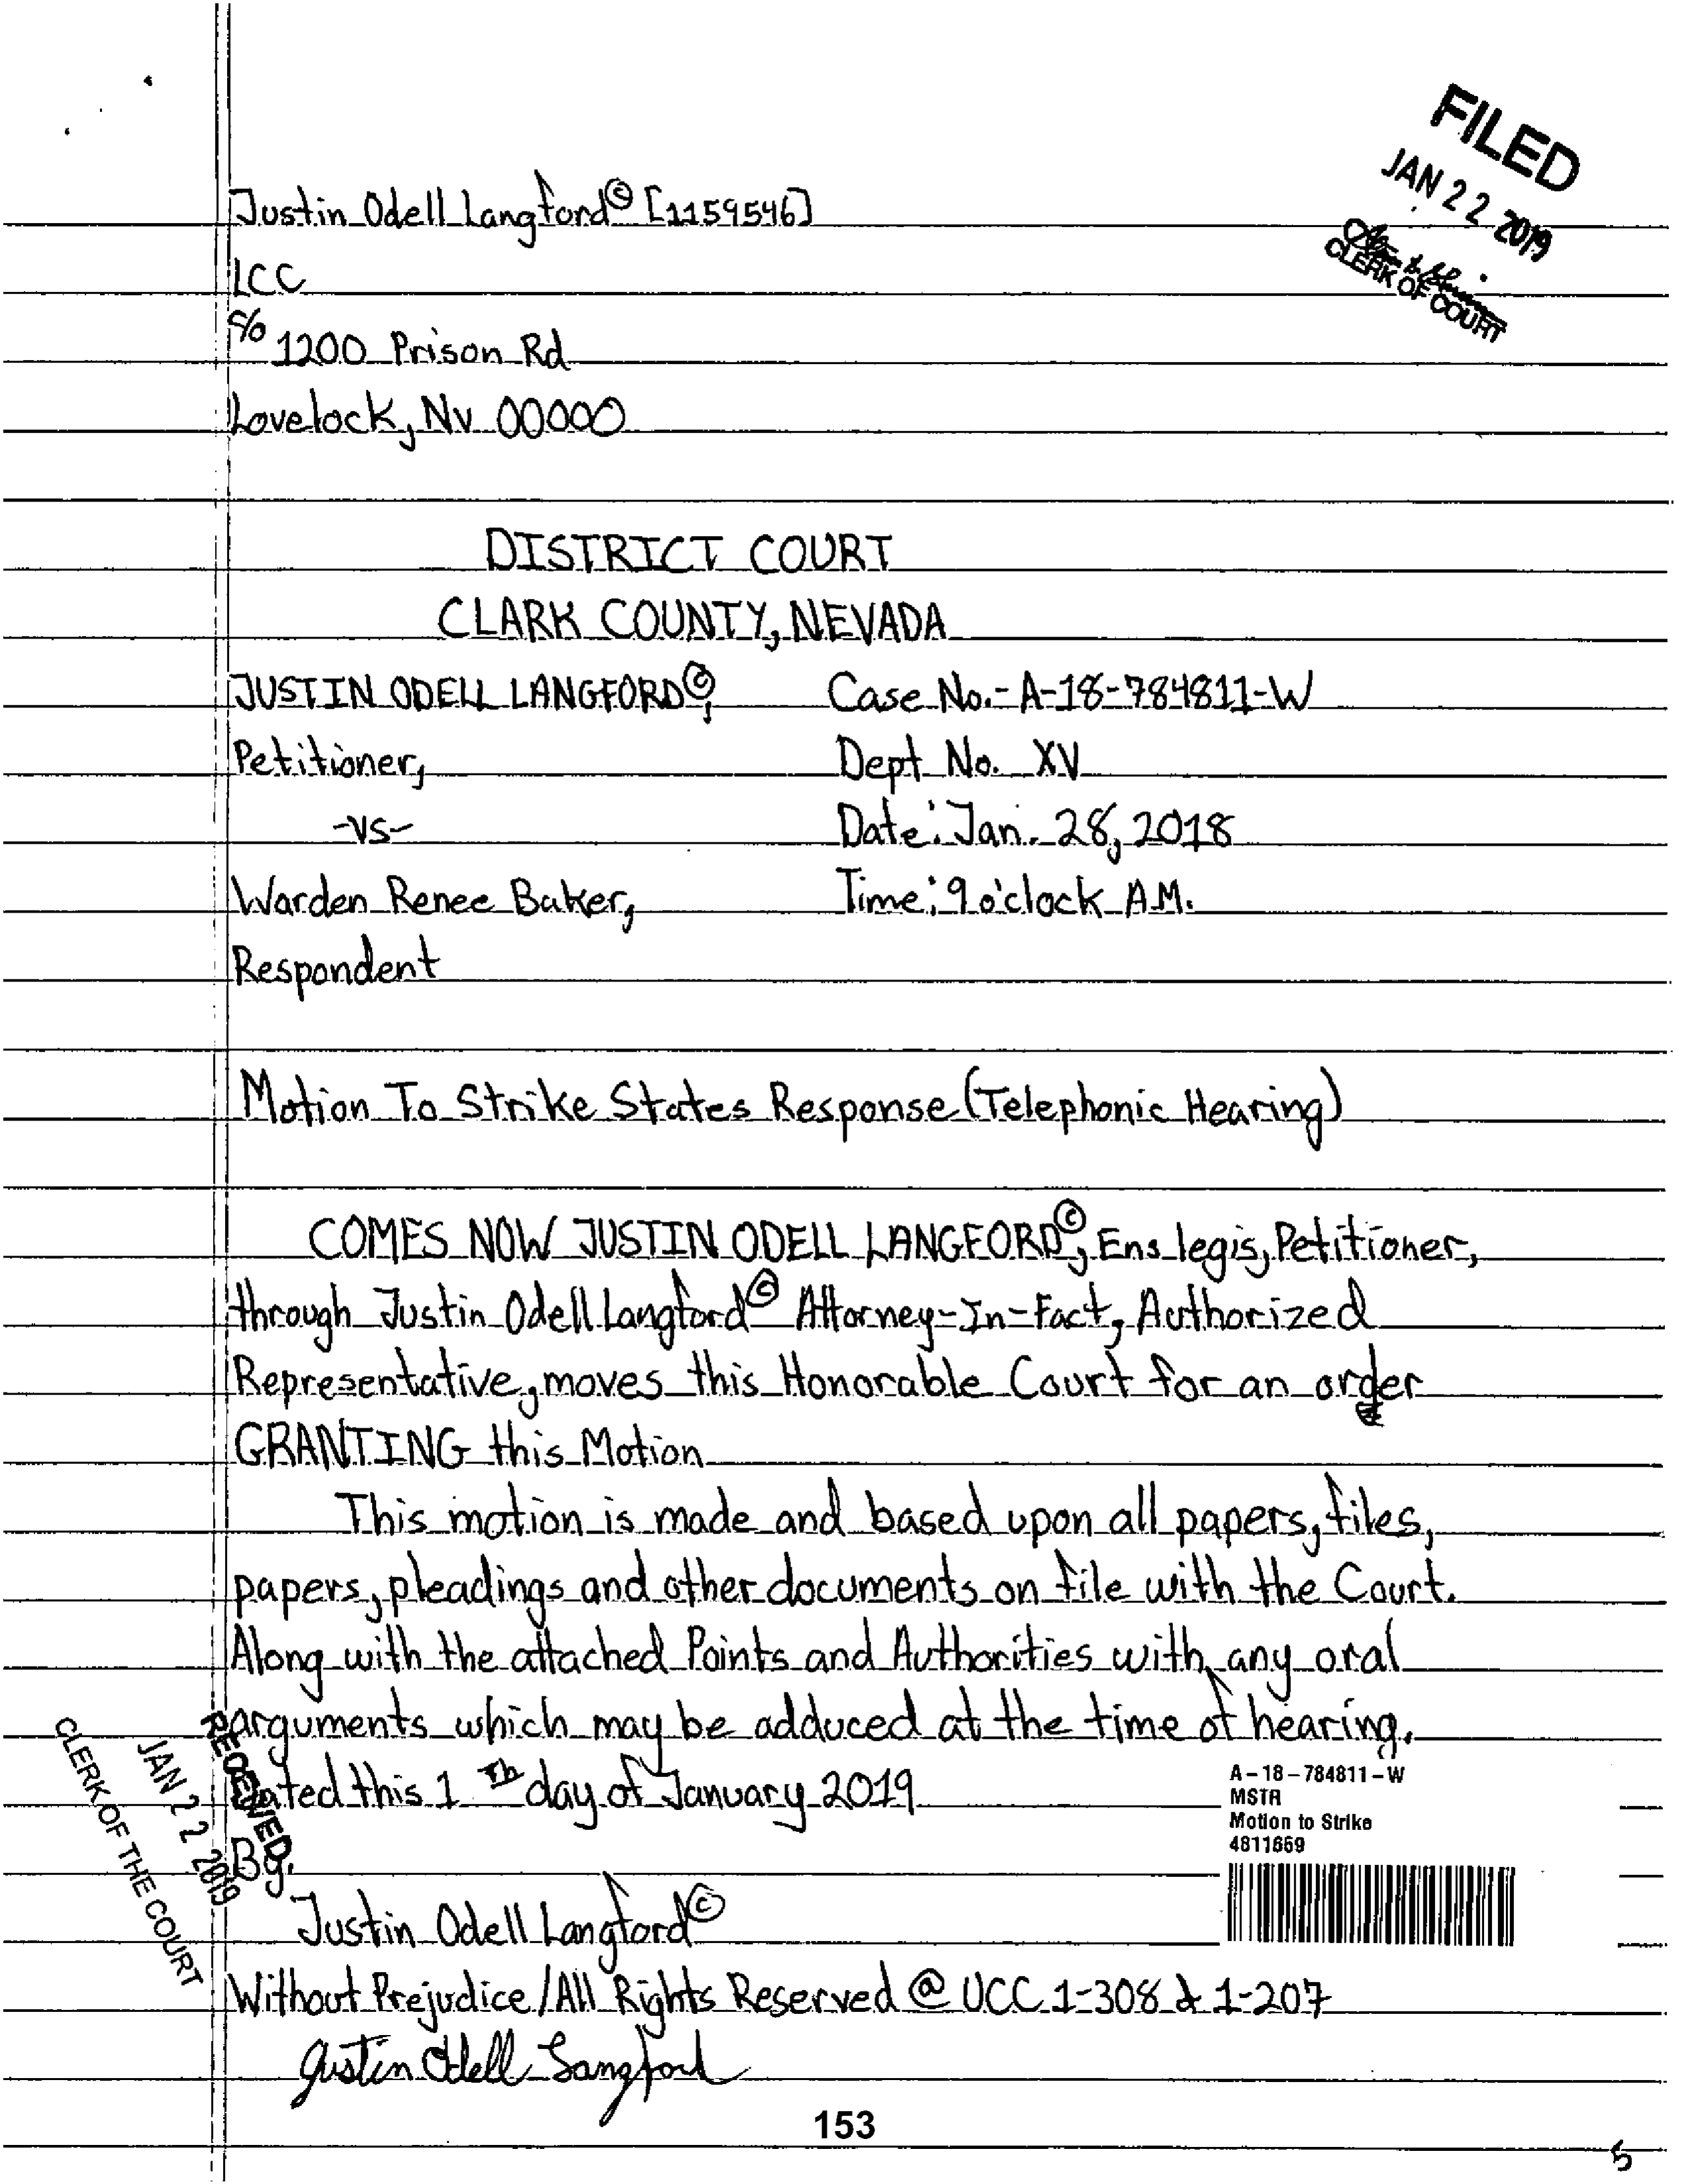 FILED
JAN 22 2019
CLERK OF COURT
Justin Odell Langford© [1159546]
LCC
c/o 1200 Prison Rd
Lovelock, Nv 00000
DISTRICT COURT
CLARK COUNTY, NEVADA
JUSTIN ODELL LANGFORD©, Case No.- A-18-784811-W
Petitioner, Dept No. XV
-vs- Date: Jan. 28, 2018
Warden Renee Baker, Time: 9 o'clock A.M.
Respondent
Motion To Strike States Response (Telephonic Hearing)
COMES NOW JUSTIN ODELL LANGFORD©, Ens legis, Petitioner,
through Justin Odell Langford© Attorney-In-Fact, Authorized
Representative, moves this Honorable Court for an order
GRANTING this Motion
This motion is made and based upon all papers, files,
papers, pleadings and other documents on file with the Court.
Along with the attached Points and Authorities with any oral
arguments which may be adduced at the time of hearing.
Dated this 1 th day of January 2019
By:
Justin Odell Langford©
Without Prejudice/All Rights Reserved @ UCC 1-308 & 1-207
Justin Odell Langford
RECEIVED
JAN 22 2019
CLERK OF THE COURT
A-18-784811-W
MSTR
Motion to Strike
4811669
153
5